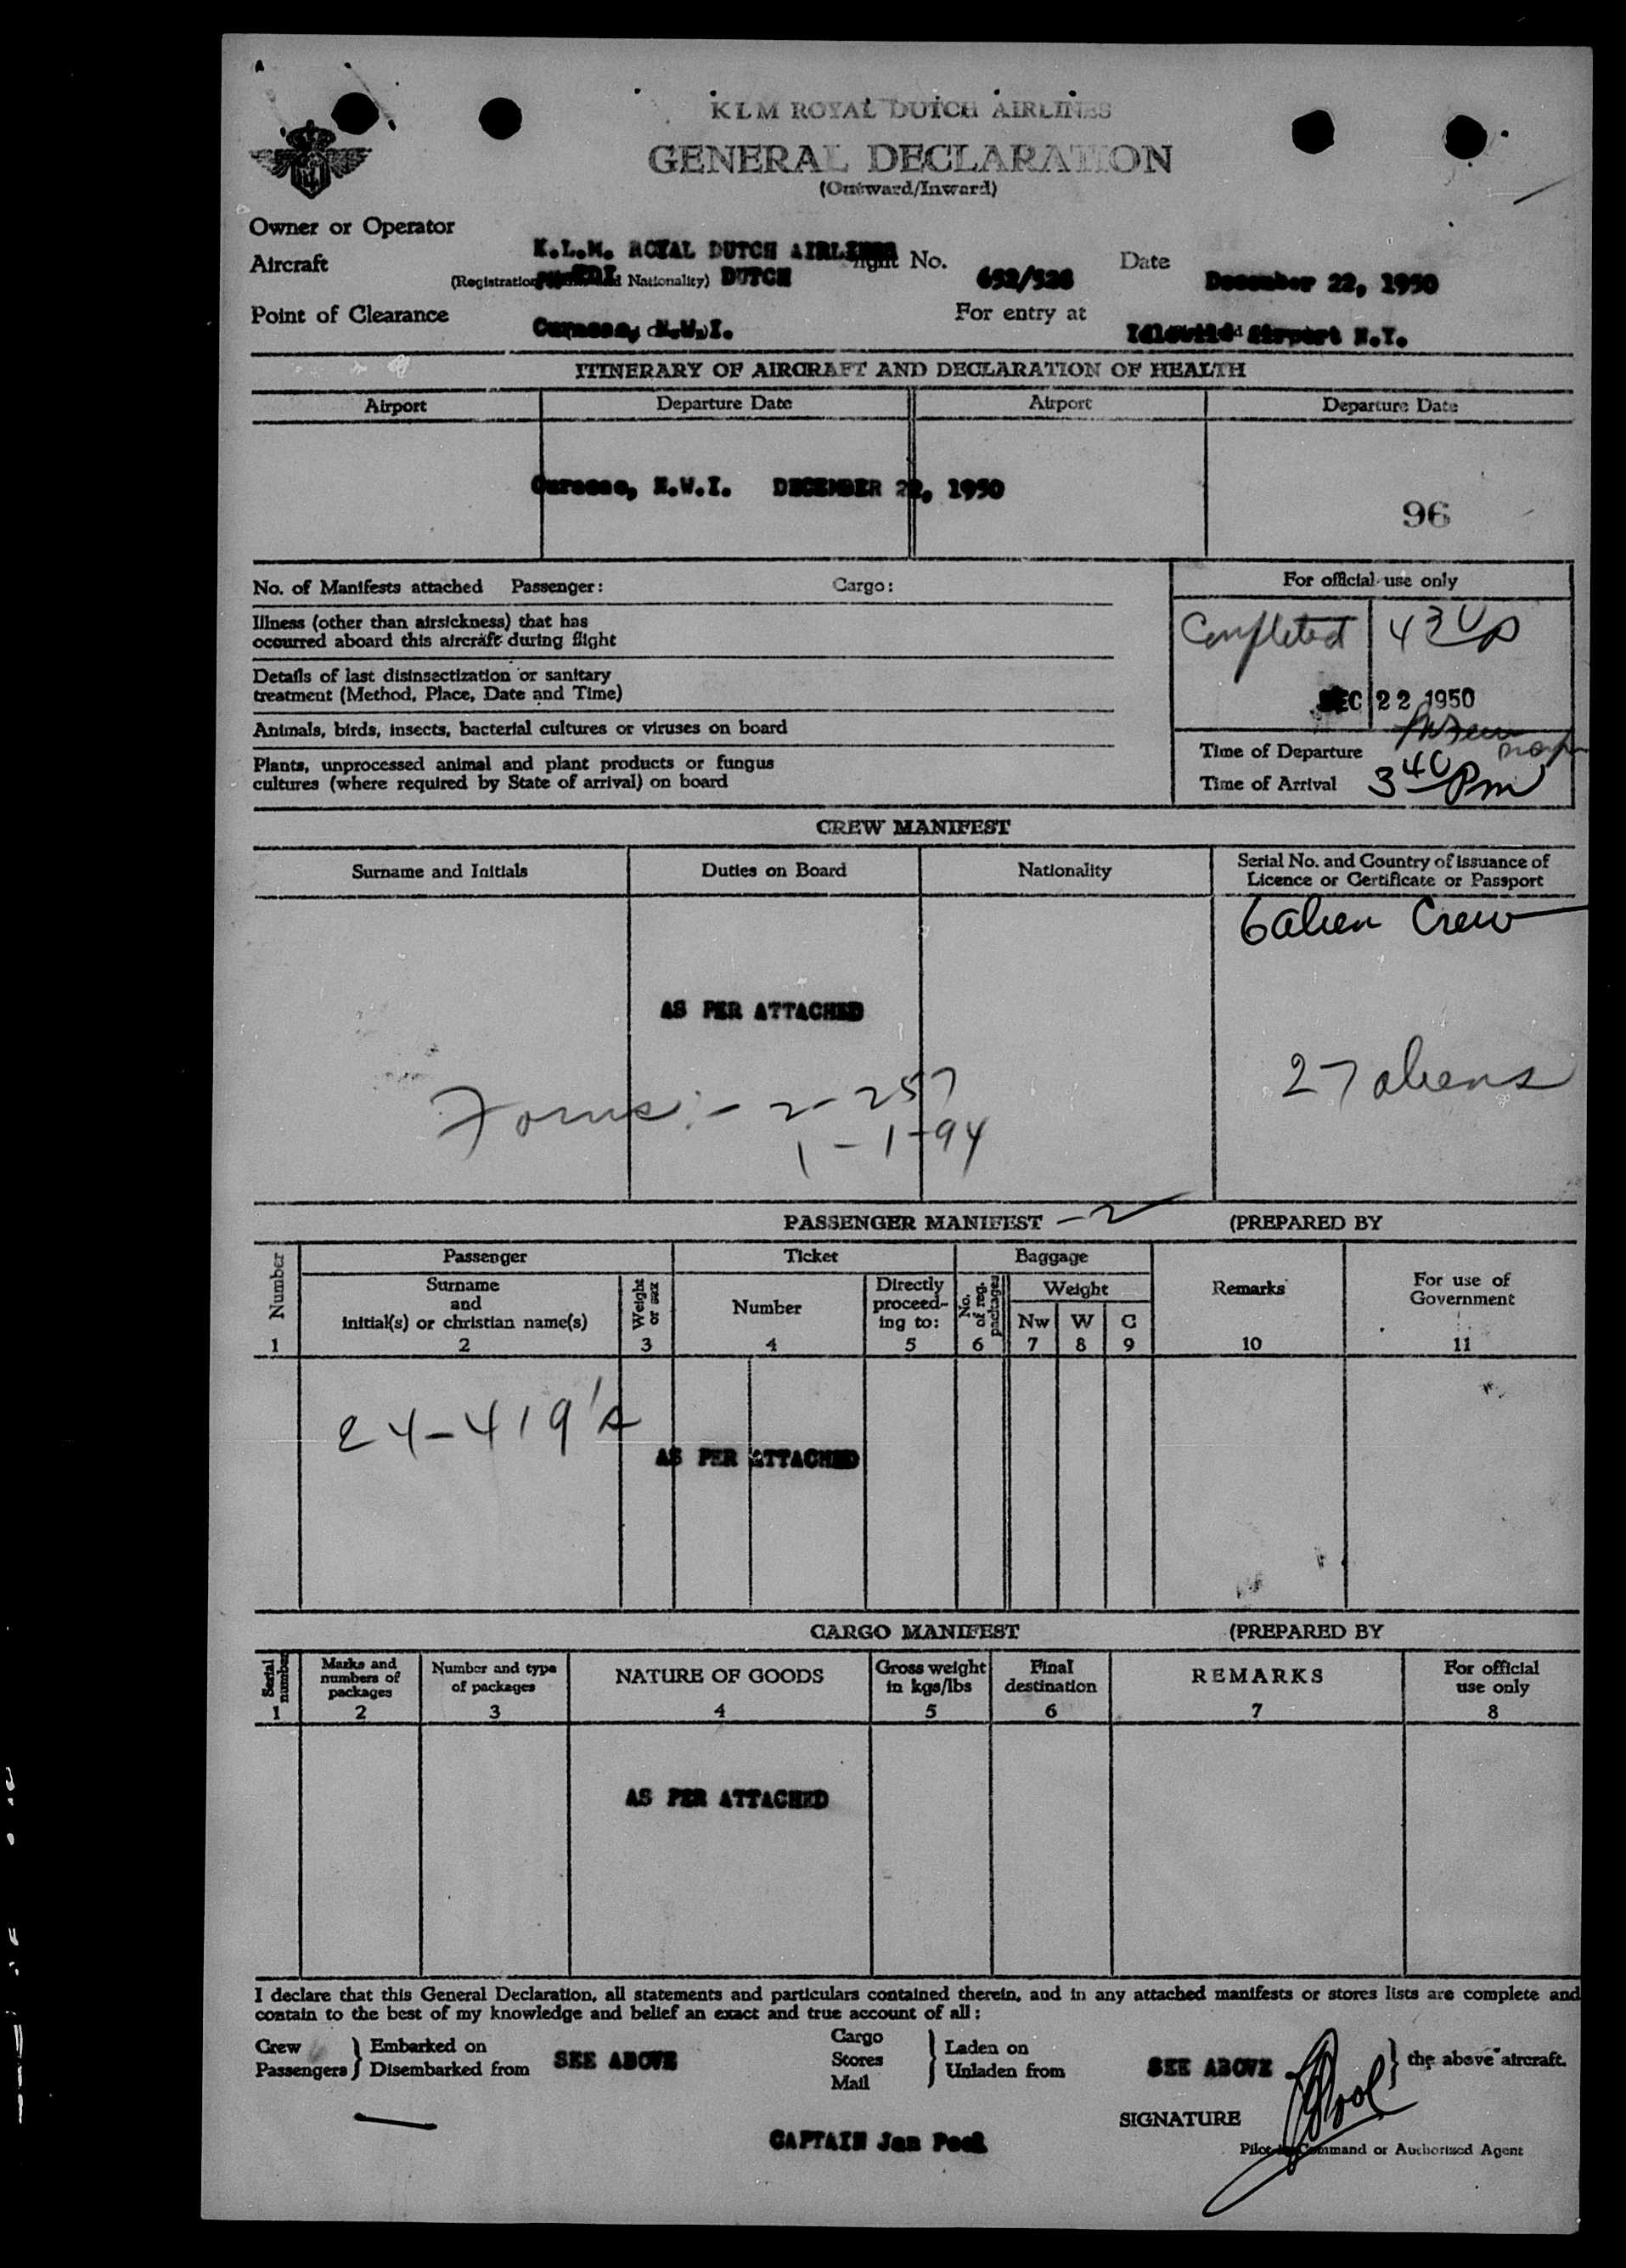 KLM ROYAL DUTCH AIRLINES
GENERAL DECLARATION
(Outward/Inward)
Owner or Operator
K.L.M. ROYAL DUTCH AIRLINES
Aircraft
(Registration Nationality) DUTCH
No. 652/526
Date December 22, 1950
Point of Clearance Curacao, N.W.I.
For entry at Idlewild Airport N.Y.
ITINERARY OF AIRCRAFT AND DECLARATION OF HEALTH
Airport Departure Date Airport Departure Date
Curacao, N.W.I. DECEMBER 22, 1950
96
No. of Manifests attached Passenger: Cargo:
Illness (other than airsickness) that has
occurred aboard this aircraft during flight
Details of last disinsectization or sanitary
treatment (Method, Place, Date and Time)
Animals, birds, insects, bacterial cultures or viruses on board
Plants, unprocessed animal and plant products or fungus
cultures (where required by State of arrival) on board
For official use only
Completed 4 30 p
DEC 22 1950
Time of Departure
Time of Arrival 3 40 Pm
CREW MANIFEST
Surname and Initials
Duties on Board
Nationality
Serial No. and Country of issuance of
Licence or Certificate or Passport
6 alien Crew
AS PER ATTACHED
27 aliens
Forms:- 2- 257
1 - 1-94
PASSENGER MANIFEST - 2
(PREPARED BY
Number
Passenger
Ticket
Baggage
Surname
and
initial(s) or christian name(s)
Weight
or sex
Number
Directly
proceed-
ing to:
No.
of reg.
packages
Weight
Nw W C
Remarks
For use of
Government
1 2 3 4 5 6 7 8 9 10 11
24-419's
AS PER ATTACHED
CARGO MANIFEST
(PREPARED BY
Serial
number
Marks and
numbers of
packages
Number and type
of packages
NATURE OF GOODS
Gross weight
in kgs/lbs
Final
destination
REMARKS
For official
use only
1 2 3 4 5 6 7 8
AS PER ATTACHED
I declare that this General Declaration, all statements and particulars contained therein, and in any attached manifests or stores lists are complete and
contain to the best of my knowledge and belief an exact and true account of all:
Crew
Passengers
Embarked on
Disembarked from
SEE ABOVE
Cargo
Stores
Mail
Laden on
Unladen from
SEE ABOVE
the above aircraft.
SIGNATURE
CAPTAIN Jan Pool
Pilot in Command or Authorized Agent